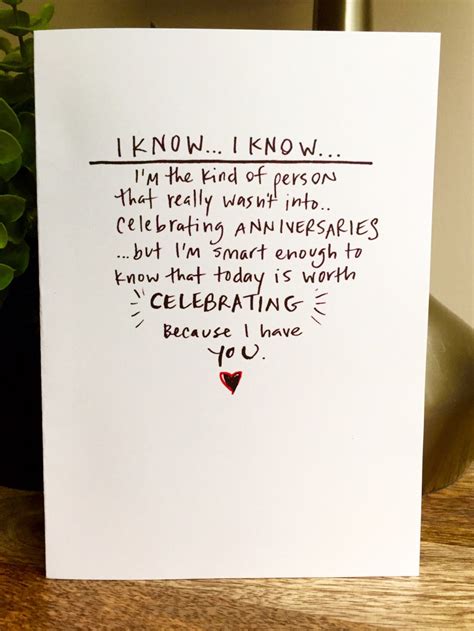 I KNOW... I KNOW...
I'm the kind of person
that really wasn't into..
celebrating ANNIVERSARIES
...but I'm smart enough to
know that today is worth
CELEBRATING
Because I have
YOU.